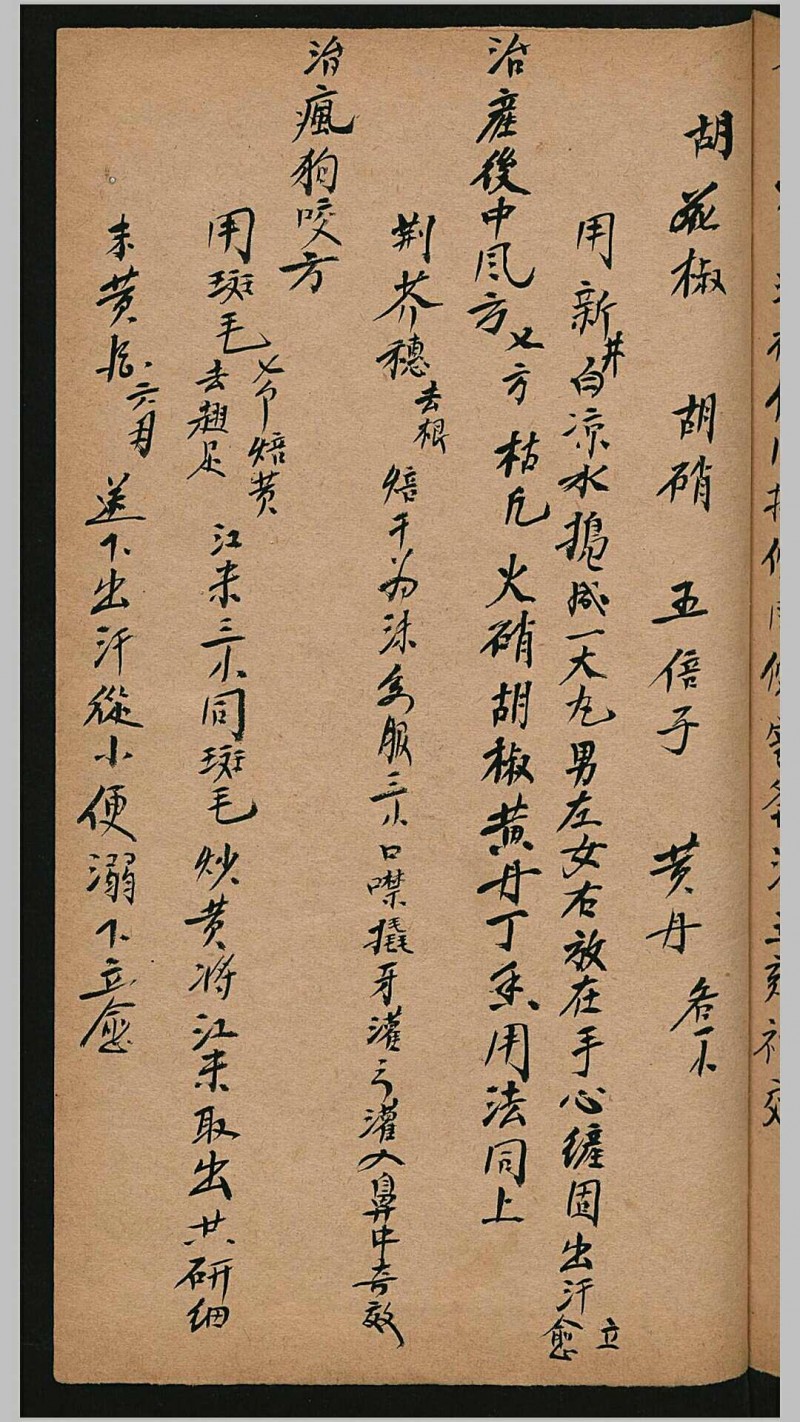 胡 花椒 胡硝 五倍子 黄丹 各一小
用新井白凉水搗成一大丸男左女右放在手心纏固出汗立愈
又方 枯凡火硝胡椒黄丹丁香用法同上
治産後中风方
荆芥穗去根 焙干为沫 服三小口噤撬牙灌 灌入鼻中奇效
治瘋狗咬方
用斑毛七个焙黄去翅足 江米三小同斑毛炒黄将江米取出共研细
末黄 送下出汗從小便溺下立愈